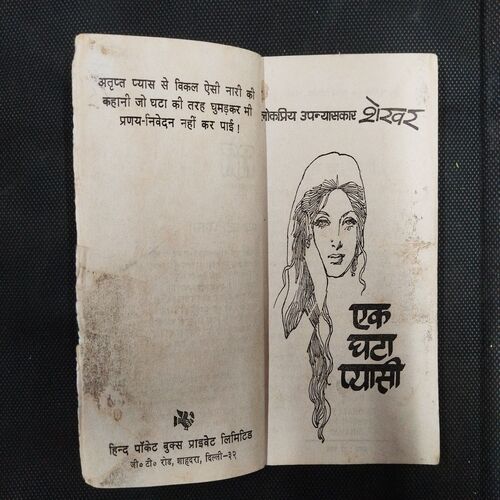 अतृप्त प्यास से विकल ऐसी नारी की
कहानी जो घटा की तरह घुमड़कर भी
प्रणय-निवेदन नहीं कर पाई !
हिन्द पॉकेट बुक्स प्राइवेट लिमिटिड
जी० टी० रोड, शाहदरा, दिल्ली-३२
लोकप्रिय उपन्यासकार शेखर
एक
घटा
प्यासी